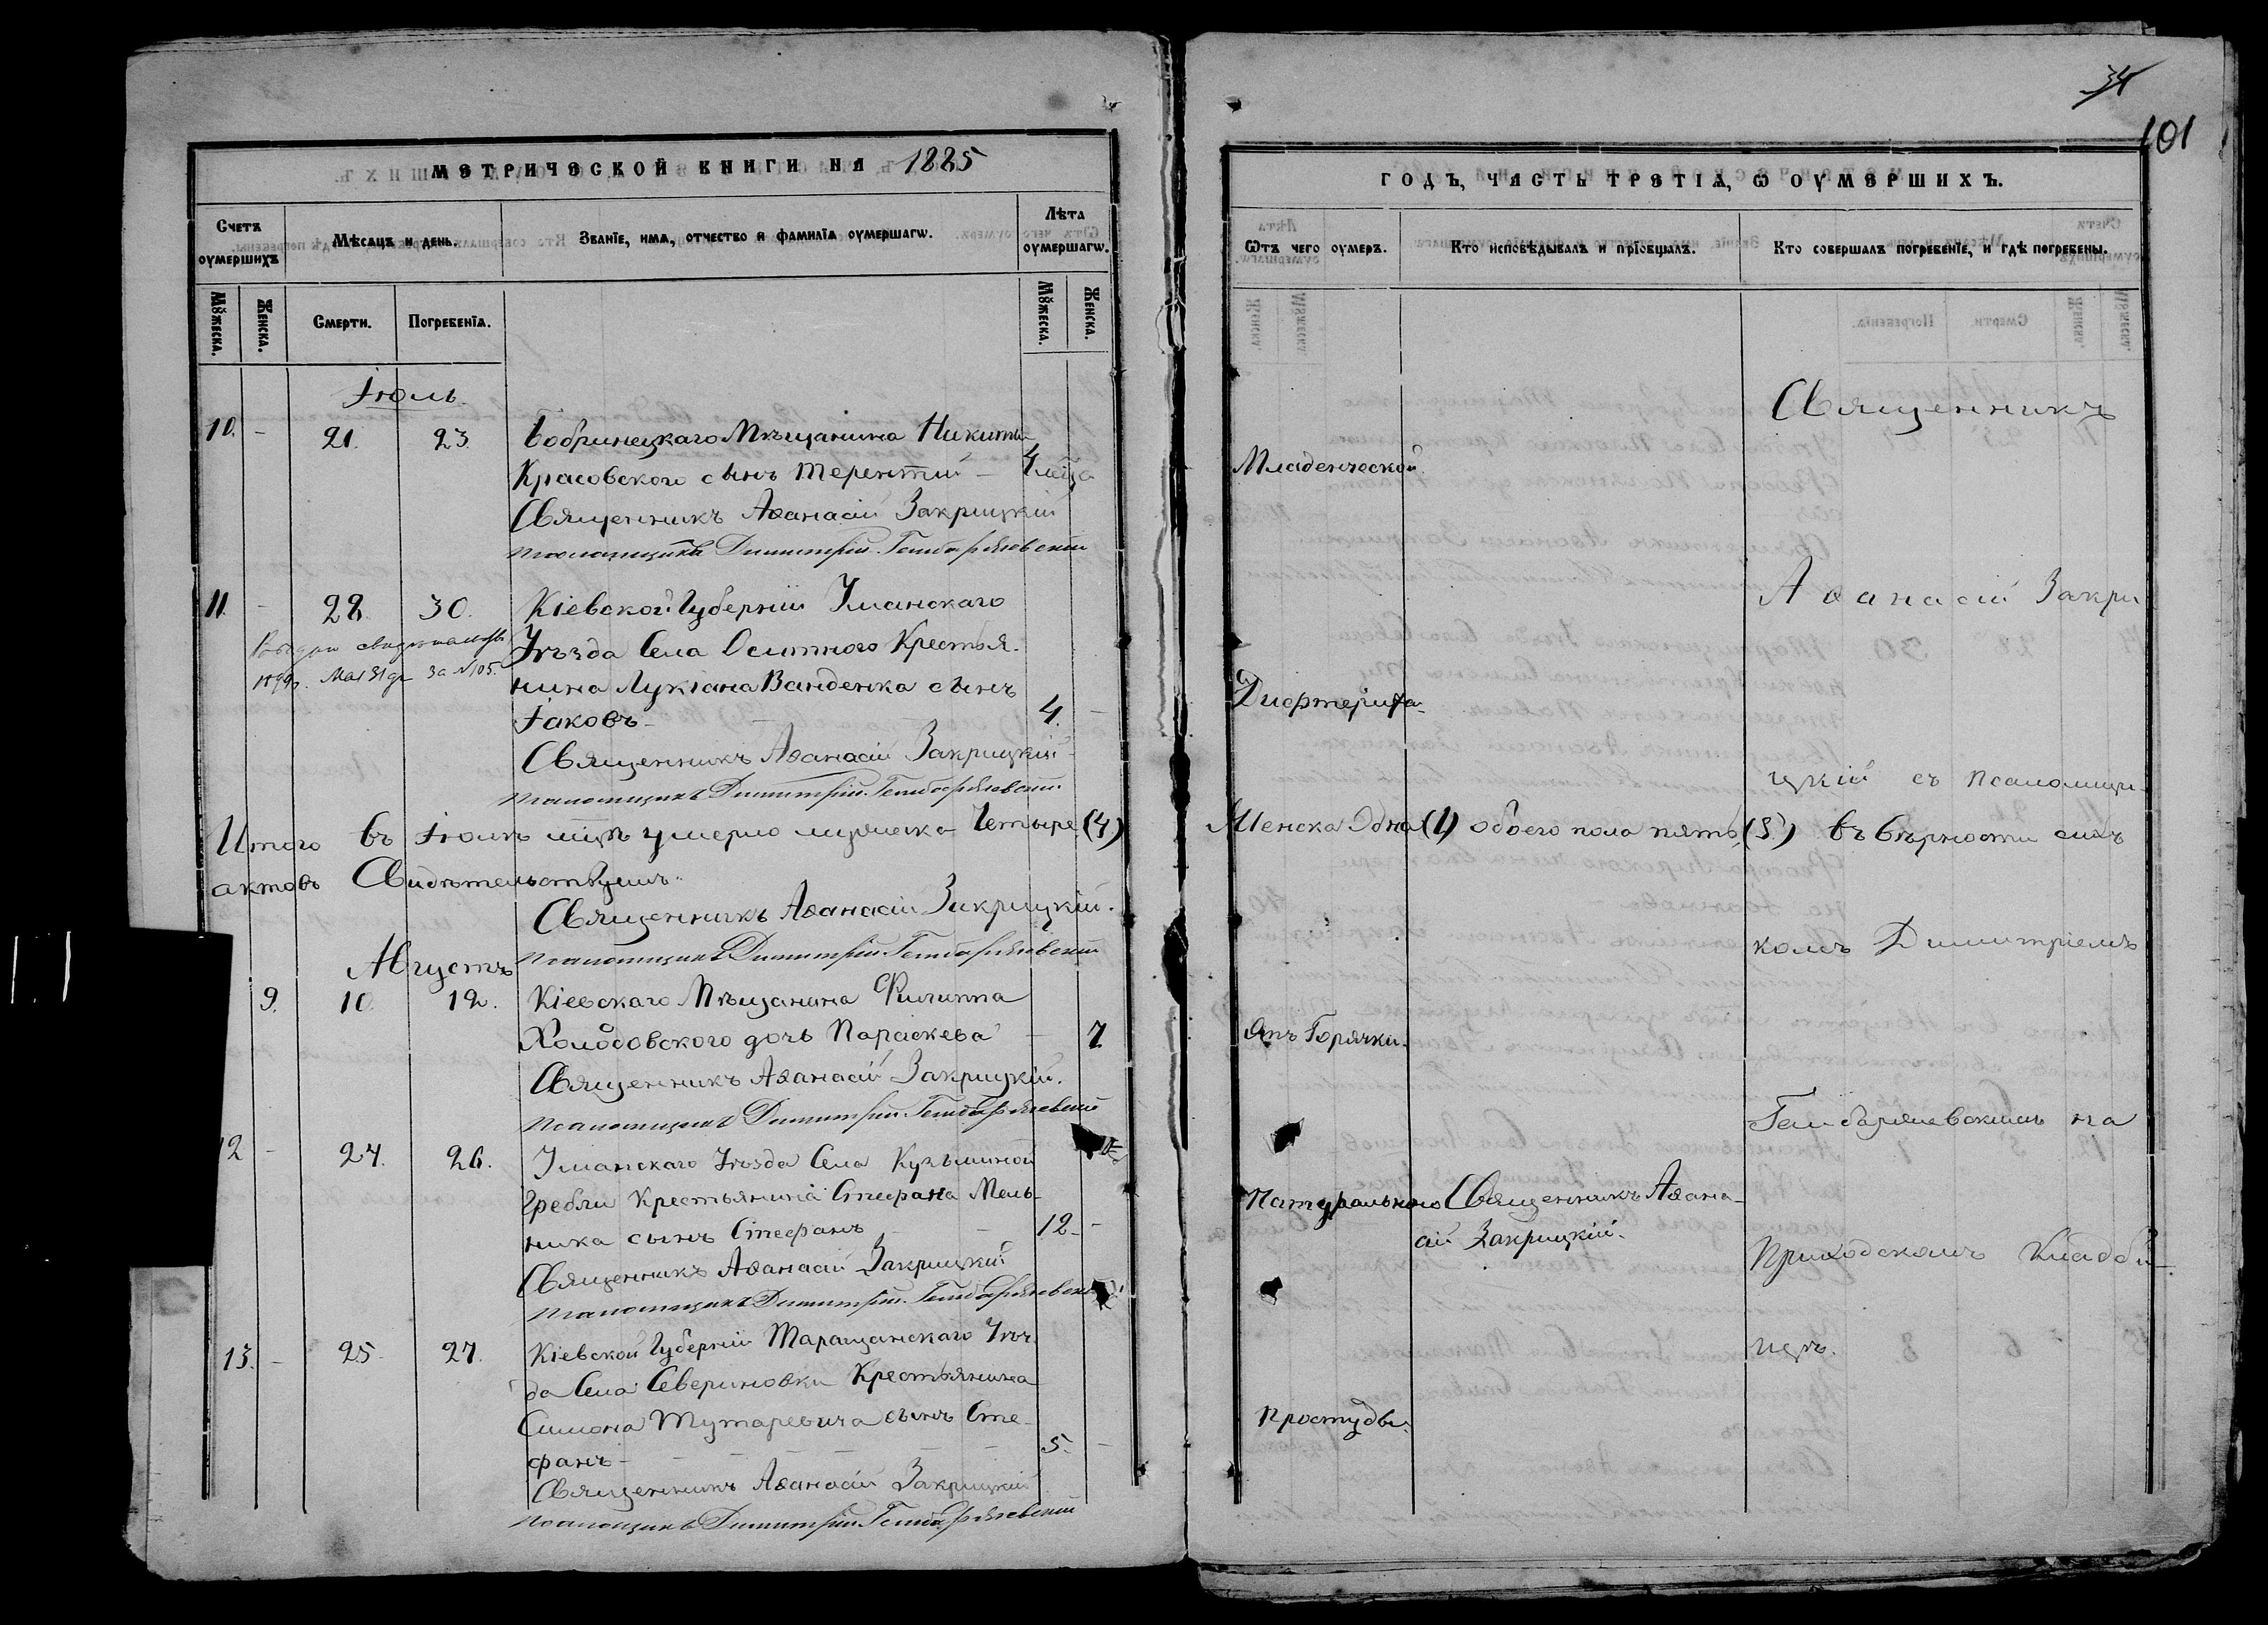 34
101
МЕТРИЧЕСКОЙ КНИГИ НА 1885
ГОДЪ, ЧАСТЬ ТРЕТІѦ, Ѡ ОУМЕРШИХЪ.
Счетъ оумершихъ
Мѣсѧцъ и день.
Званїе, имѧ, отчество и фамилїѧ оумершагѡ.
Лѣта оумершагѡ.
Ѿтъ чего оумеръ.
Кто исповѣдывалъ и прїобщалъ.
Кто совершалъ погребенїе, и гдѣ погребены.
Мꙋжеска.
Женска.
Смерти.
Погребенїѧ.
Мꙋжеска.
Женска.
Іюль.
10. - 21. 23. Бобринецкаго Мѣщанина Никиты
Красовского сынъ Терентій - 4 мѣца
Младенческой
Священникъ Аѳанасій Закрицкій
Псаломщикъ Димитрій
11. - 28. 30. Кіевской Губерніи Уманскаго
Уѣзда Села Оситного Крестья-
нина Лукіана Ванденка сынъ
Іаковъ - 4. -
Дифтерита
свидетельство
189 г. Мая 31 дн за №105.
Священникъ Аѳанасій Закрицкій
Псаломщикъ Димитрій
Итого въ Іюлѣ мцѣ умерло мужеска Четыре (4)
Женска Одна (1) обоего пола пять (5) въ вѣрности сихъ
актовъ Свидѣтельствуемъ.
Священникъ Аѳанасій Закрицкій.
Псаломщикъ Димитрій
Августъ
9. 10. 12. Кіевскаго Мѣщанина Филиппа
Холодовского дочь Параскева - 7
Отъ Горячки.
Священникъ Аѳанасій Закрицкій.
Псаломщикъ Димитрій
12 - 24. 26. Уманскаго Уѣзда Села Кузьминой
Гребли Крестьянина Стефана Мель-
ника сынъ Стефанъ - 12 -
Натурально
Священникъ Аѳана-
сій Закрицкій.
Священникъ Аѳанасій Закрицкій
Псаломщикъ Димитрій
13. - 25. 27. Кіевской Губерніи Таращанскаго Уѣз-
да Села Севериновки Крестьянина
Симона Тутаревича сынъ Сте-
фанъ - 5. -
Простуды.
Священникъ Аѳанасій Закрицкій
Псаломщикъ Димитрій
Священникъ
Аѳанасій Закри
цкій съ псаломщи-
комъ Димитріемъ
на
Приходскомъ Кладби-
щѣ.